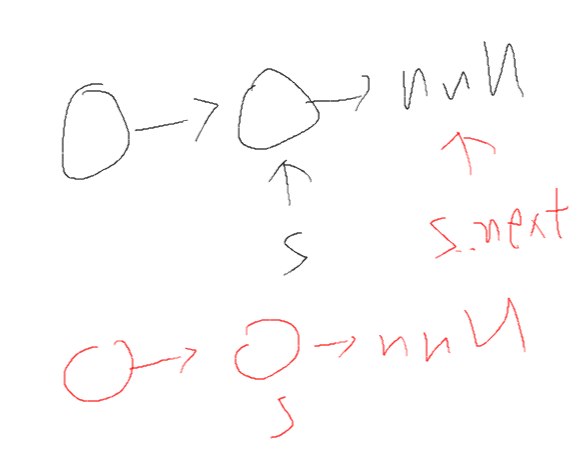 null
s.next
s
null
s